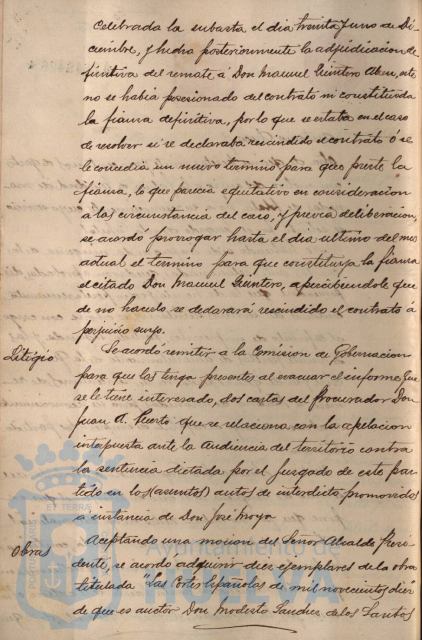 celebrada la subasta el dia treinta y uno de Di-
ciembre, y hecha posteriormente la adjudicacion de-
finitiva del remate á Don Manuel Quintero este
no se habia posesionado del contrato ni constituida
la fianza definitiva, por lo que se estaba en el caso
de resolver si se declaraba rescindido el contrato ó se
le concedia un nuevo termino para que preste la
fianza, lo que parecia equitativo en consideracion
a las circunstancia del caso; y previa deliberacion,
se acordó prorrogar hasta el dia ultimo del mes
actual el termino para que constituya la fianza
el citado Don Manuel Quintero, apercibiendole que
de no hacerlo se declarará rescindido el contrato á
perjuicio suyo.
Litigio
Se acordó remitir a la Comision de Gobernacion
para que las tenga presentes al evacuar el informe que
se le tiene interesado, dos cartas del Procurador Don
Juan A. Puerto que se relaciona con la apelacion
interpuesta ante la Audiencia del territorio contra
la sentencia dictada por el Juzgado de este par-
tido en los (asuntos) autos de interdicto promovidos
a instancia de Don José Moya
Obras
Aceptando una mocion del Señor Alcalde Presi-
dente, se acordo adquirir diez ejemplares de la obra
titulada "Las Cortes Españolas de mil novecientos diez"
de que es auctor Don Modesto Sanchez de los Santos
Ayuntamiento de
HUELVA